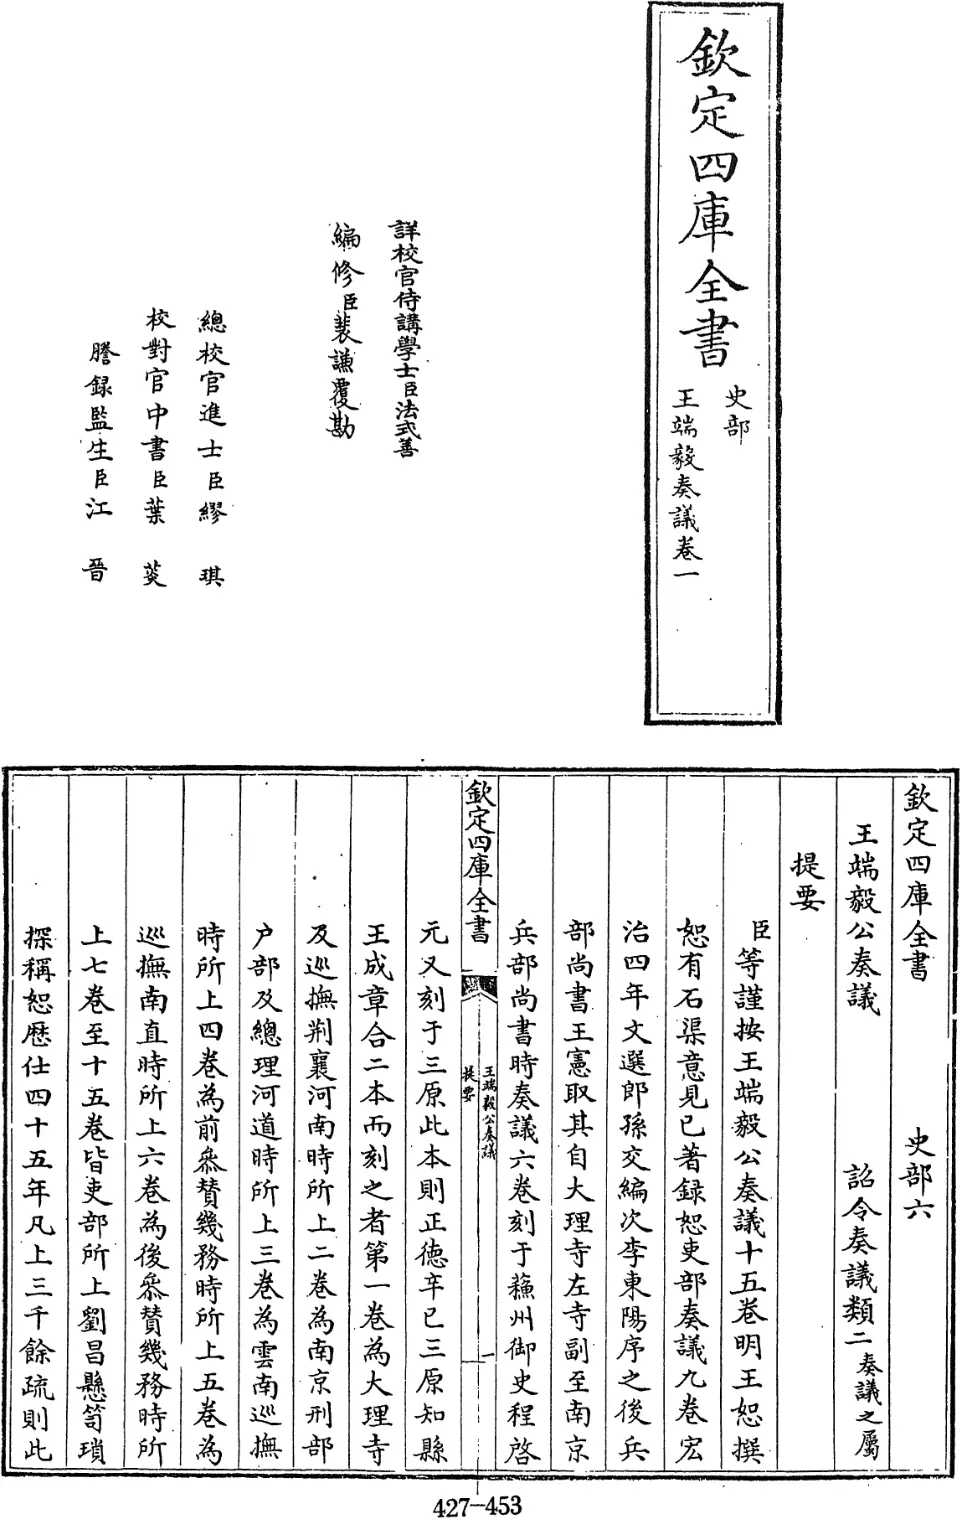 欽定四庫全書
史部
王端毅奏議卷一
詳校官侍講學士臣法式善
編修臣裴謙覆勘
總校官進士臣繆琪
校對官中書臣葉菼
謄録監生臣江晉
欽定四庫全書 史部六
王端毅公奏議 詔令奏議類二奏議之屬
提要
臣等謹按王端毅公奏議十五卷明王恕撰
恕有石渠意見已著録恕吏部奏議九卷宏
治四年文選郎孫交編次李東陽序之後兵
部尚書王憲取其自大理寺左寺副至南京
兵部尚書時奏議六卷刻于蘓州御史程啓
欽定四庫全書
王端毅公奏議
提要
一
元又刻于三原此本則正徳辛已三原知縣
王成章合二本而刻之者第一卷為大理寺
及巡撫荆襄河南時所上二卷為南京刑部
户部及總理河道時所上三卷為雲南巡撫
時所上四卷為前叅賛幾務時所上五卷為
巡撫南直時所上六卷為後叅賛幾務時所
上七卷至十五卷皆吏部所上劉昌懸笥瑣
探稱恕歴仕四十五年凡上三千餘疏則此
427-453